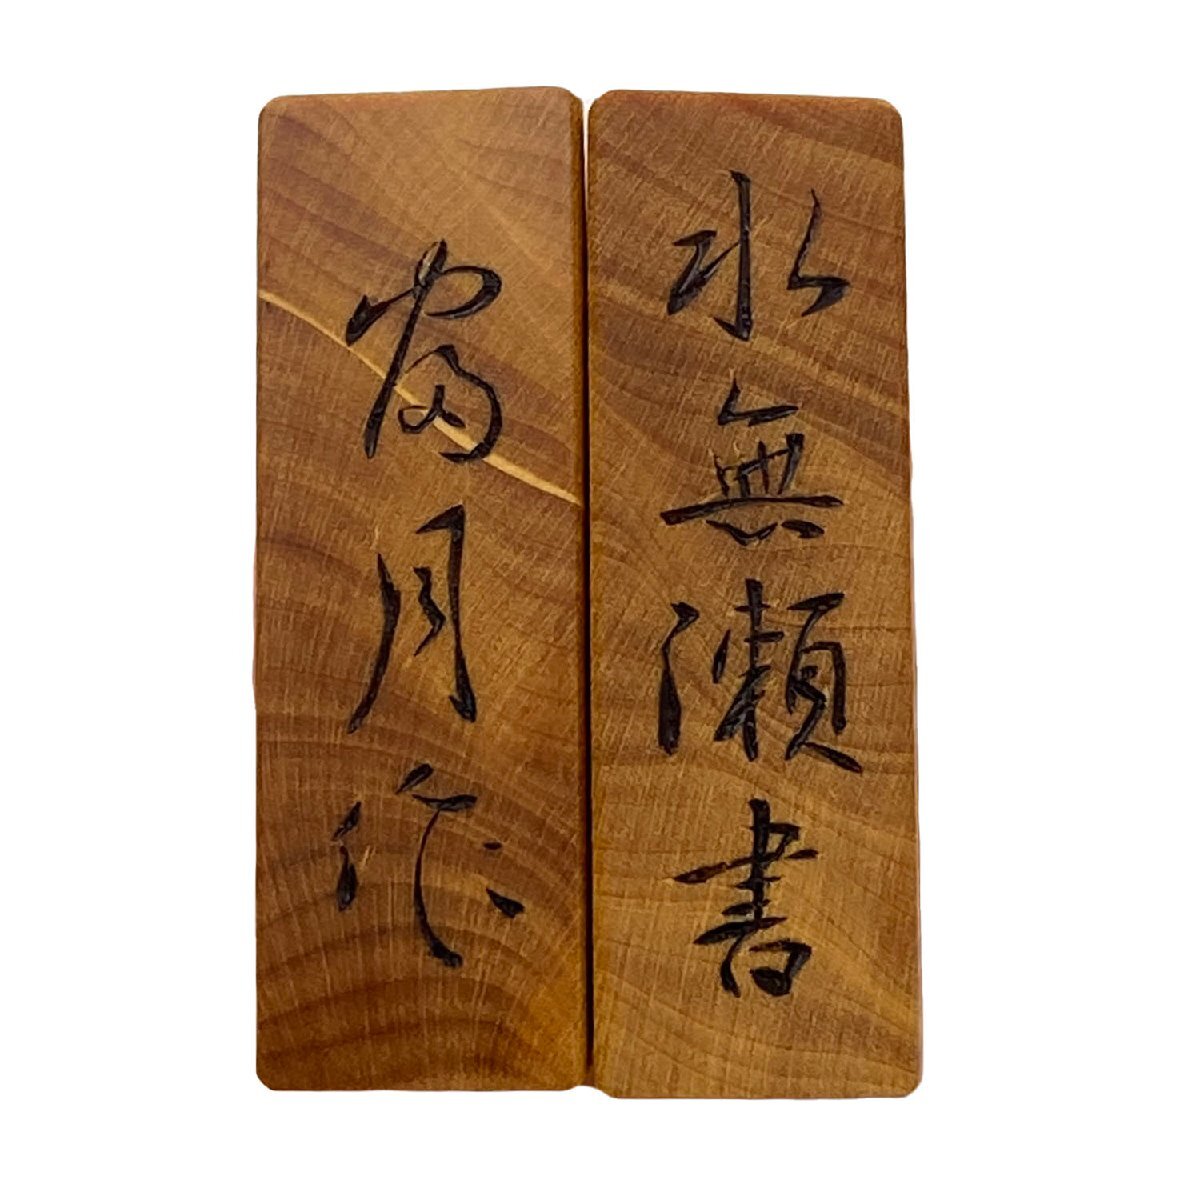 水無瀬書
富月作